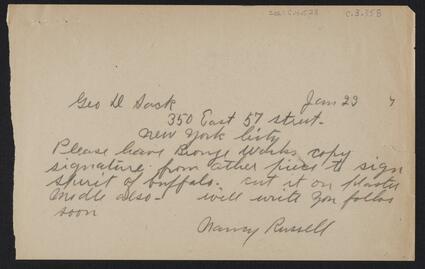 C.3.358
Geo D Sack Jan 23
350 East 57 street.
New York City
Please have Bronze Works copy
signature from other pieces to sign
spirit of buffalo. cut it on plaster
Modle also - will write you folks
soon
Nancy Russell